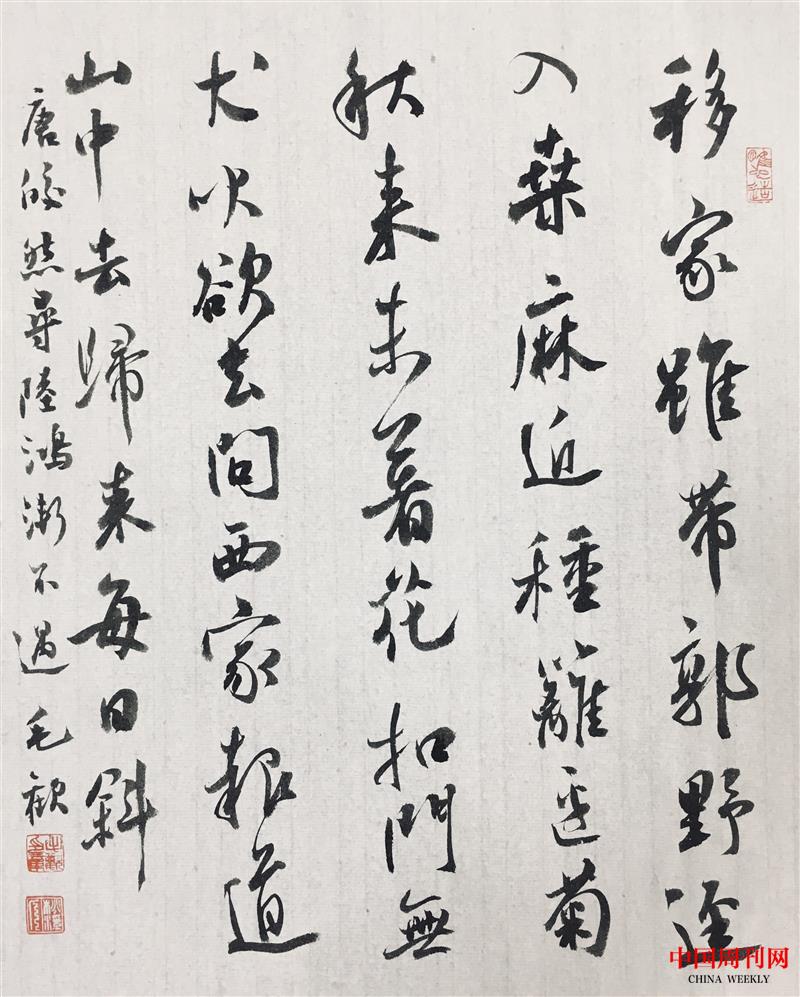 移家雖帶郭野逕
入桑麻近種籬邊菊
秋来未著花扣門無
犬吠欲去問西家報道
山中去歸来每日斜
唐皎然尋陸鴻漸不遇 毛歡
中国周刊网
CHINA WEEKLY